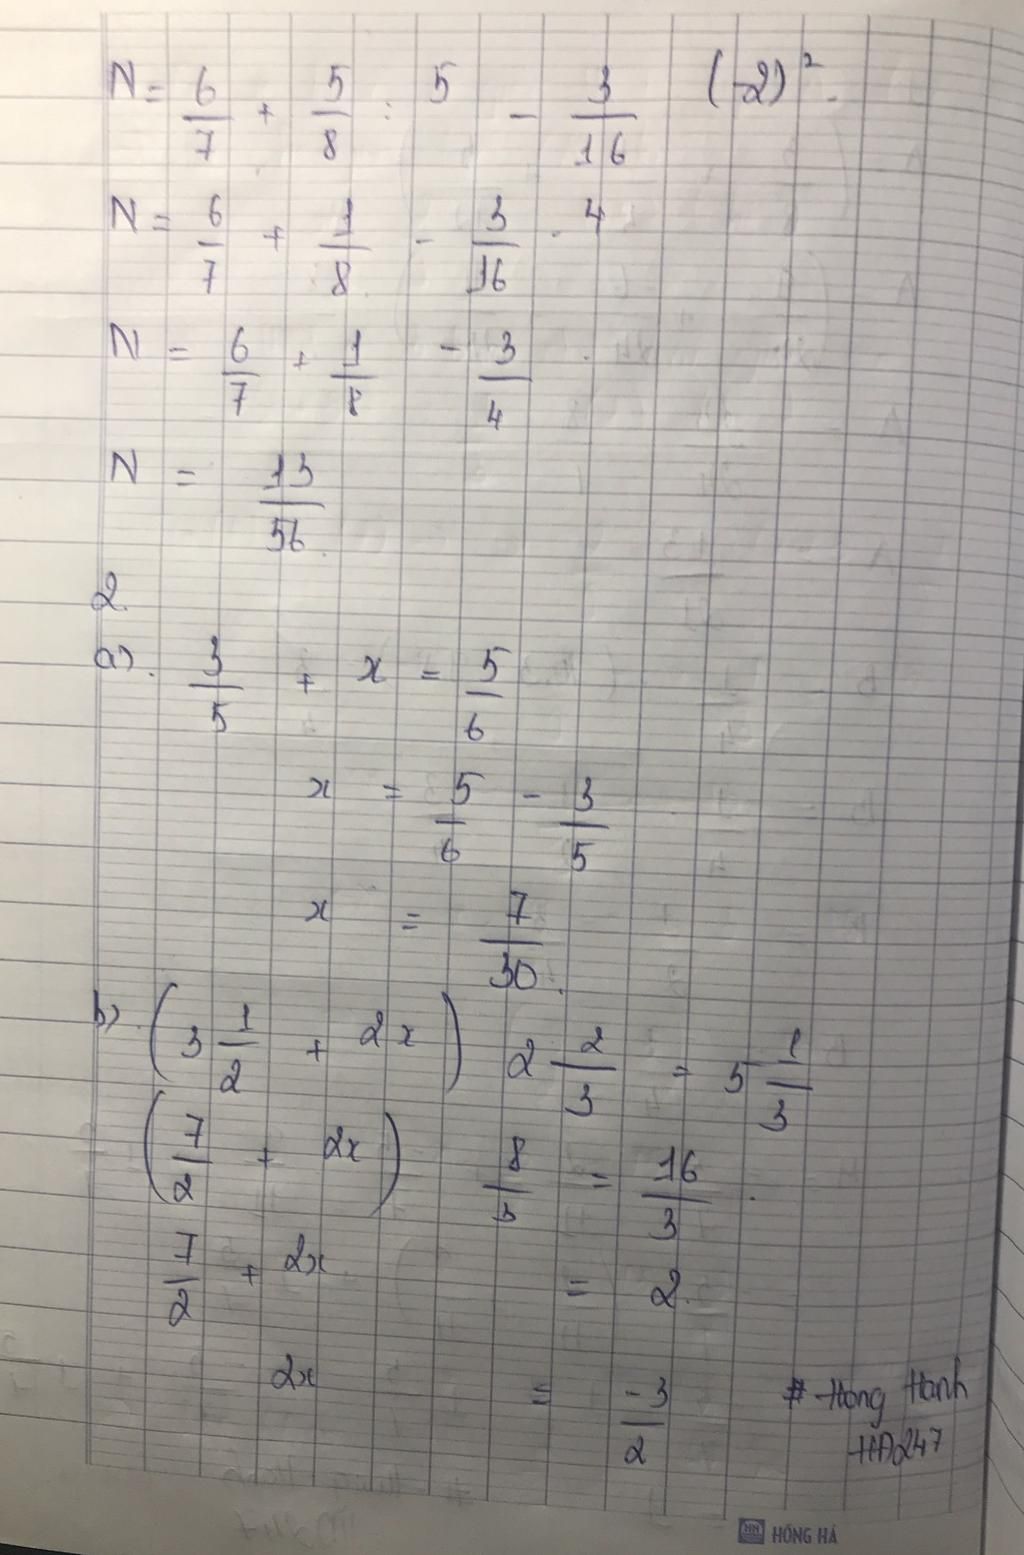 N = 6/7 + 5/8 : 5 - 3/16 (-2)².
N = 6/7 + 1/8 - 3/16 . 4
N = 6/7 + 1/8 - 3/4 .
N = 13/56.
2.
a). 3/5 + x = 5/6
x = 5/6 - 3/5
x = 7/30.
b). (3 1/2 + 2x) 2 2/3 = 5 1/3
(7/2 + 2x) 8/3 = 16/3.
7/2 + 2x = 2.
2x = -3/2
# Hong Hanh
HD247
HỒNG HÀ